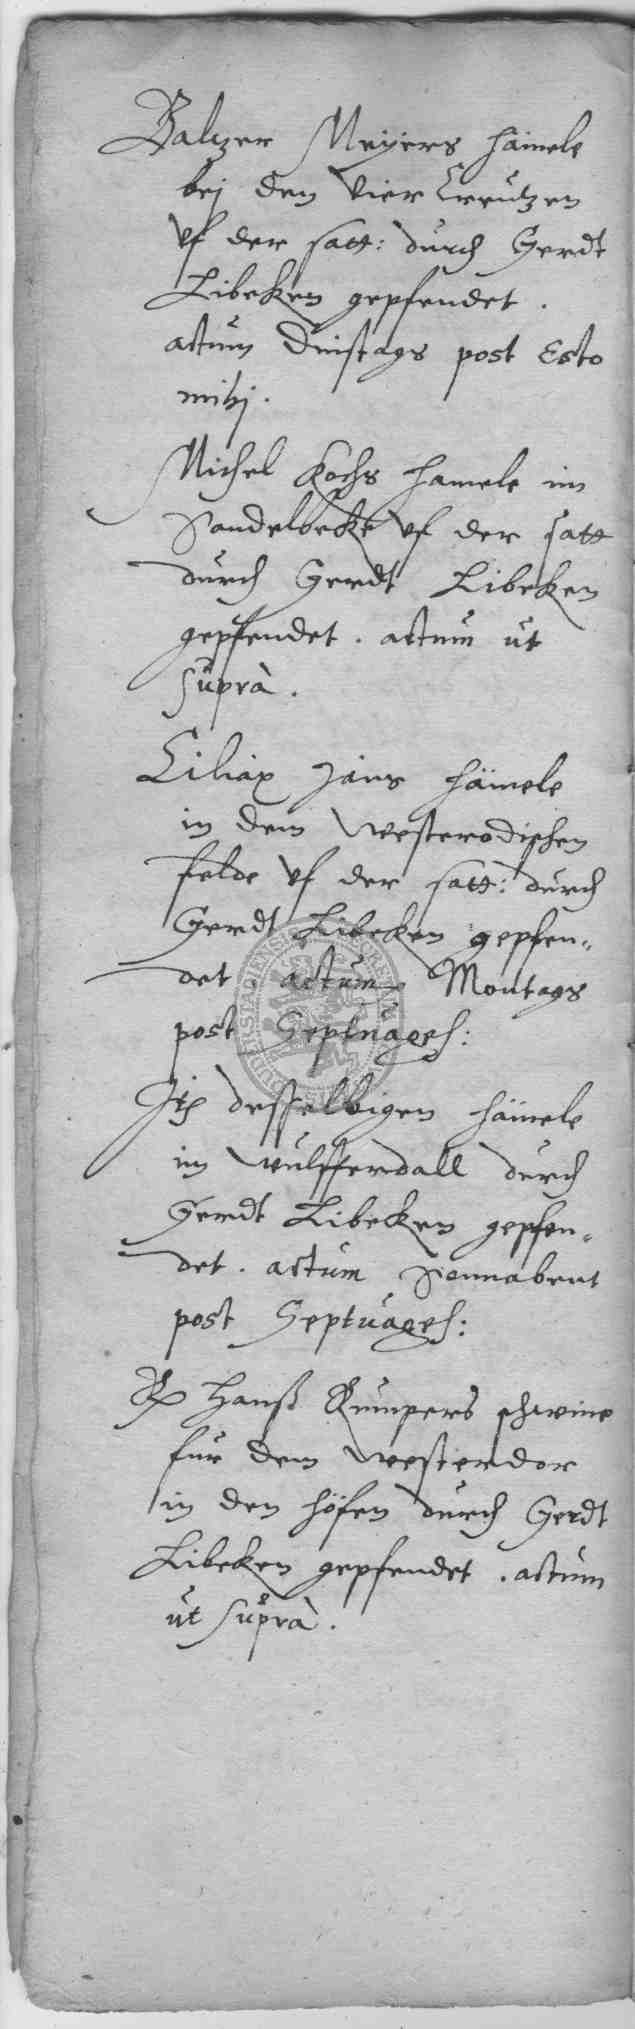 Baltzer Meyers hämele
bej den vier Creutzen
vf der satt: durch Gerdt
Libeken gepfendet.
actum Dinstags post Esto
mihj.
Michel Kochs hamele im
Sandelbeke vf der satt
durch Gerdt Libeken
gepfendet. actum ut
suprà.
Ciliax Jäns hämele
in dem Westerodischen
felde vf der satt: durch
Gerdt Libeken gepfen-
det. actum Montags
post Septuages:
Itē desselbigen hämele
im Wulfferdall durch
Gerdt Libeken gepfen-
det. actum Sonnabent
post Septuages:
Hanß Rumpers schwine
fur dem Westerdor
in den höfen durch Gerdt
Libeken gepfendet. actum
ut suprà.